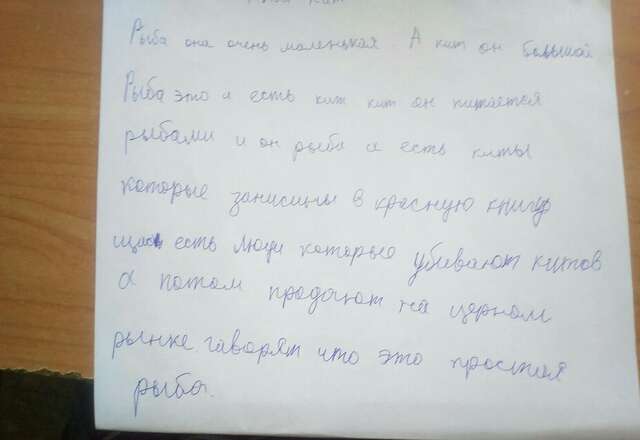 кит
Рыба она очень маленькая. А кит он большой
Рыба это и есть кит кит он питается
рыбами и он рыба а есть киты
которые занисины в красную книгу
есть люди которые убивают китов
а потом продают на церном
рынке. гаворят что это простая
рыба.